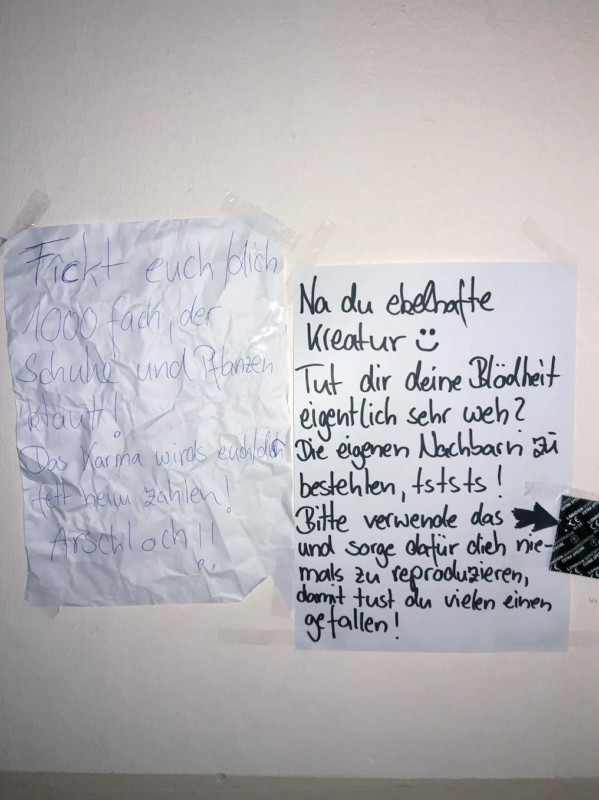 Fickt euch/dich
1000fach, der
Schuhe und Pflanzen
klaut!
Das Karma wirds euch/dich
fett heim zahlen!
Arschloch!!
Na du ekelhafte
Kreatur
Tut dir deine Blödheit
eigentlich sehr weh?
Die eigenen Nachbarn zu
bestehlen, tststs!
Bitte verwende das
und sorge dafür dich nie-
mals zu reproduzieren,
damit tust du vielen einen
gefallen!